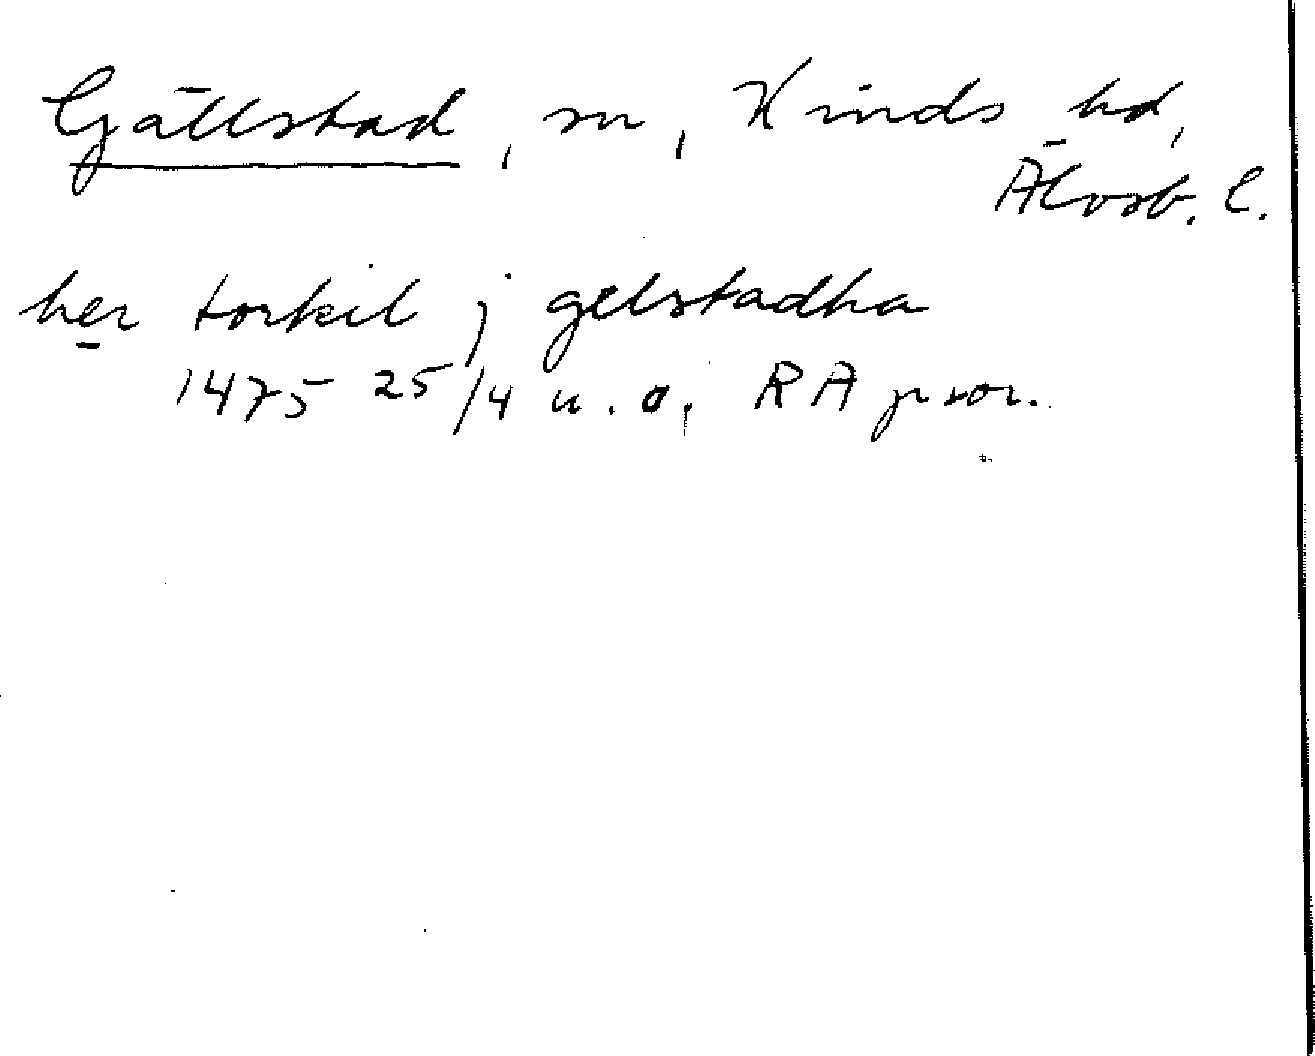 Gällstad, sn, Kinds hd,
Älvsb. l.
her torkil j gelstadha
1475 25/4 u. o. RA ppor.